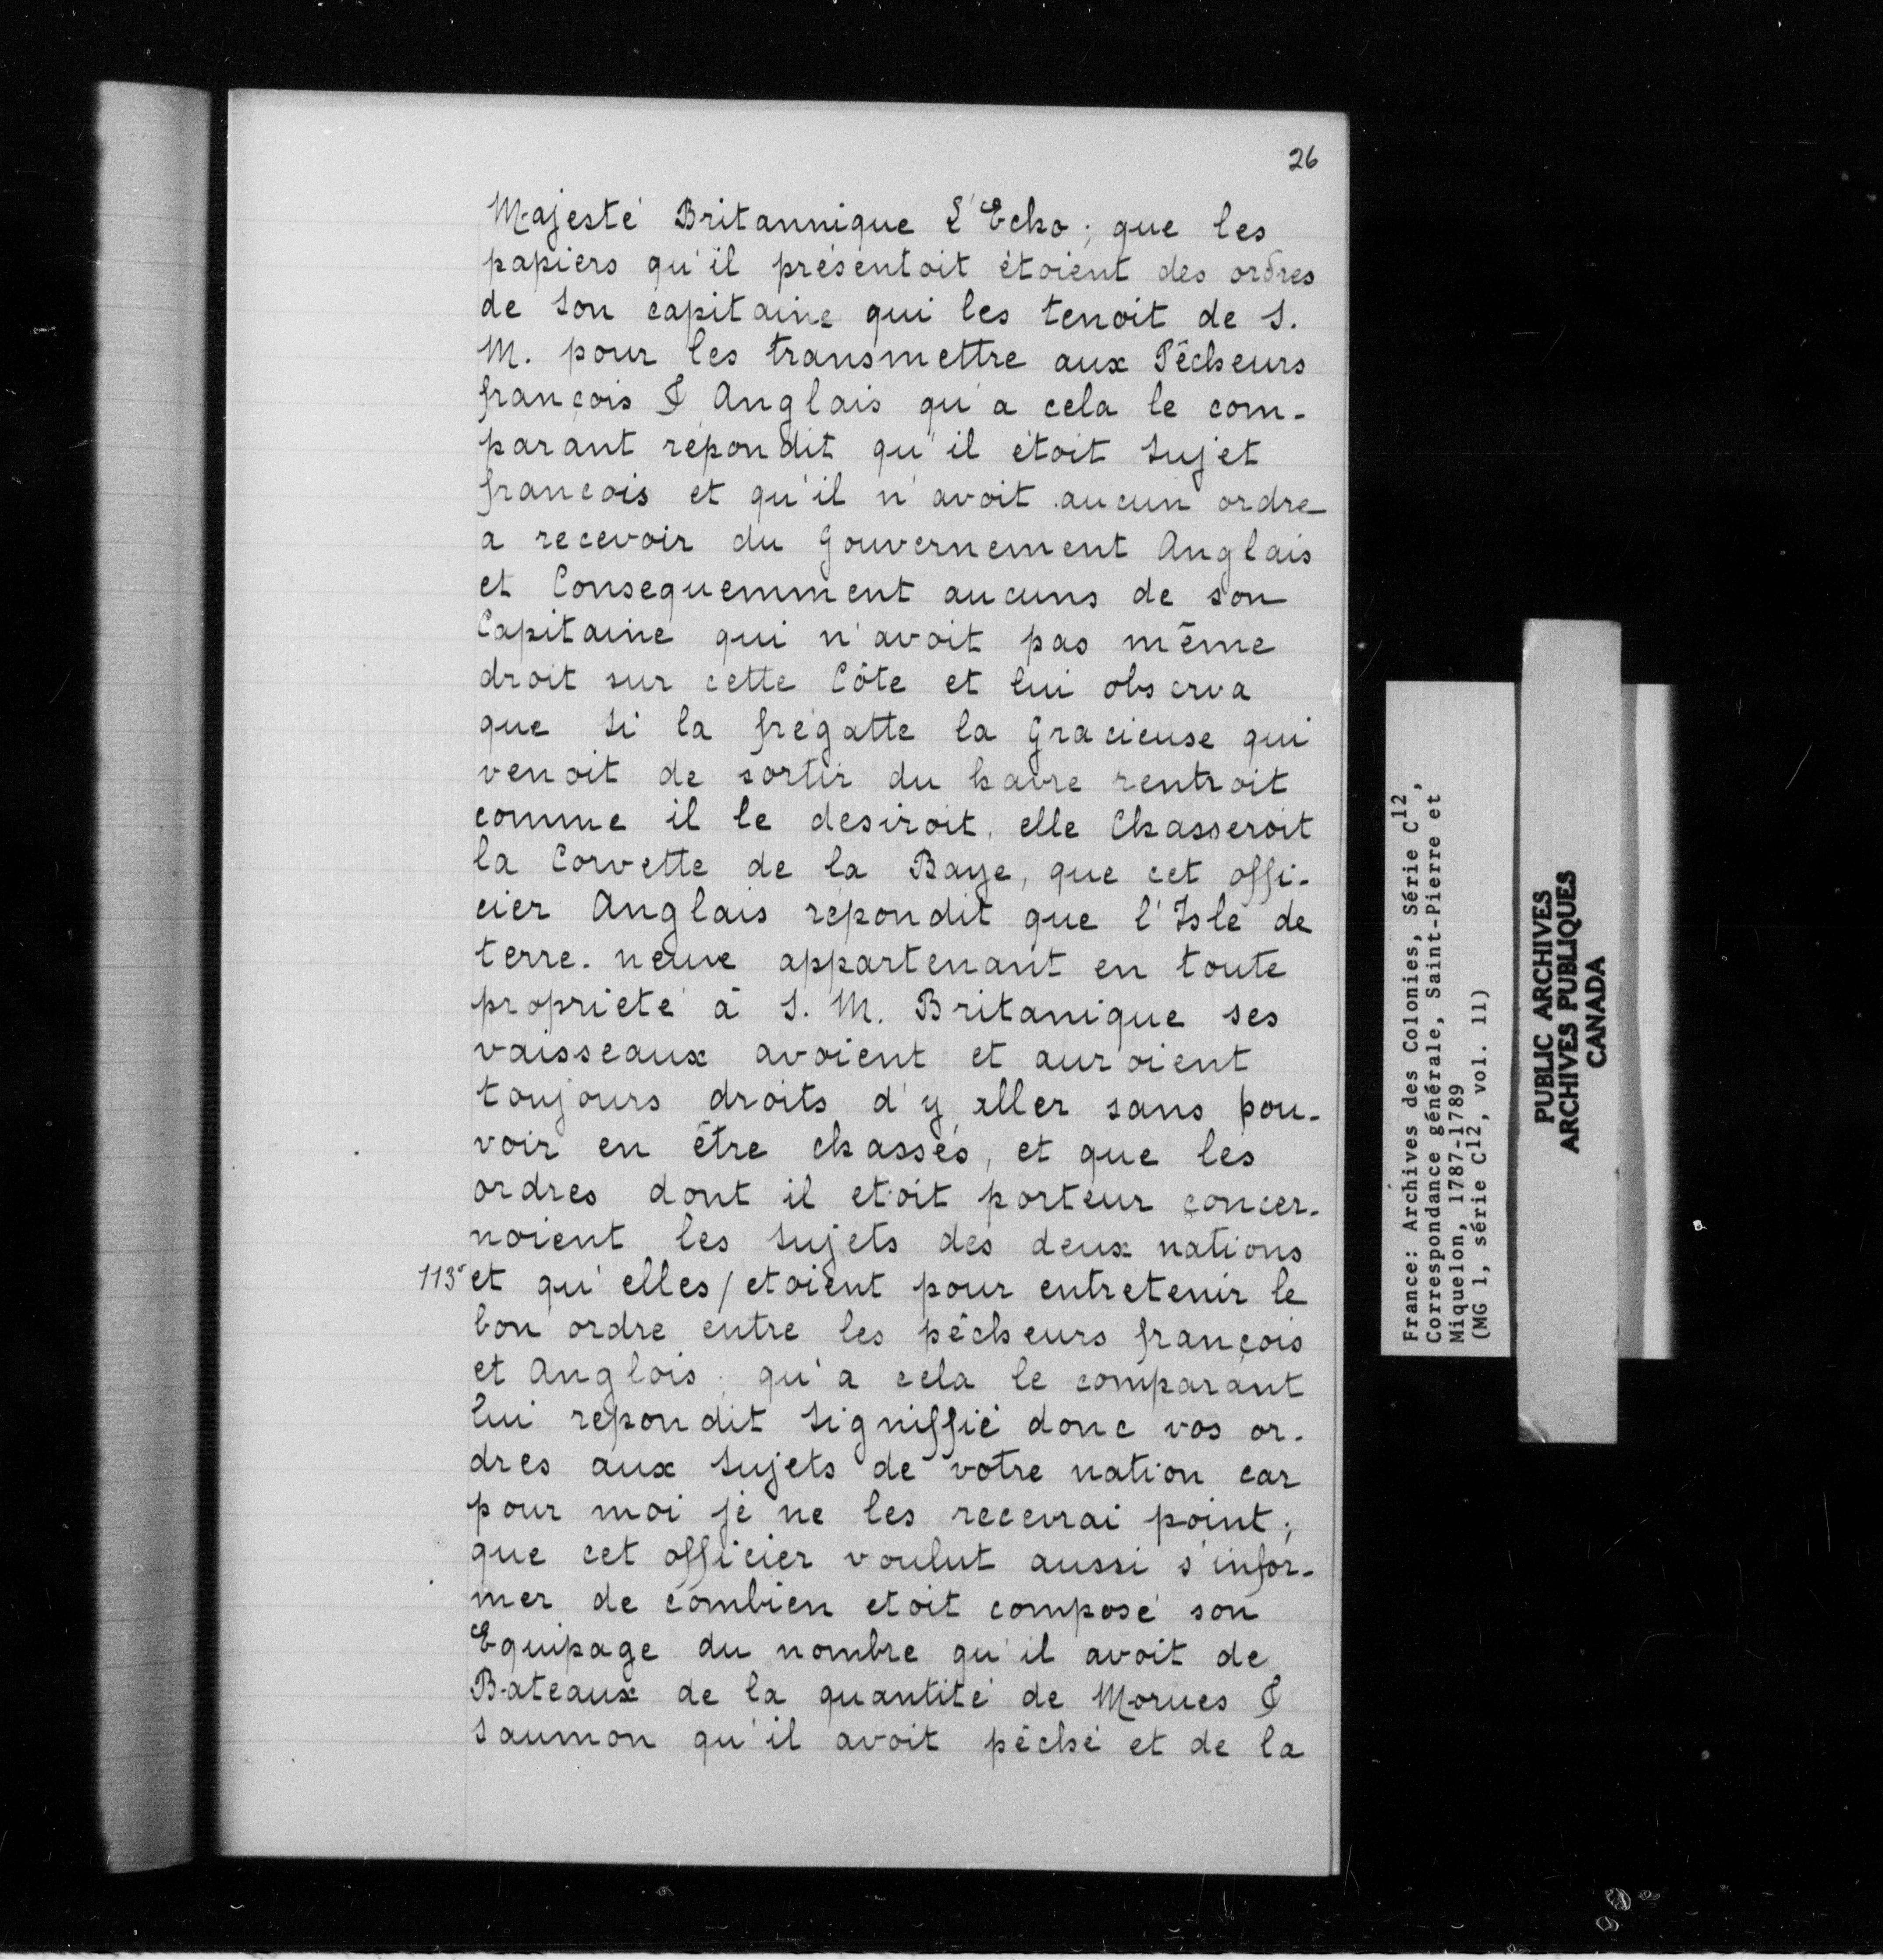 26
Majesté Britannique L'Echo; que les
papiers qu'il présentoit étoient des ordres
de son capitaine qui les tenoit de S.
M. pour les transmettre aux Pêcheurs
françois & Anglais qu'a cela le com-
parant répondit qu'il étoit sujet
francois et qu'il n'avoit aucun ordre
a recevoir du Gouvernement Anglais
et Consequemment aucuns de son
Capitaine qui n'avoit pas même
droit sur cette Côte et lui observa
que si la frégatte la Gracieuse qui
venoit de sortir du havre rentroit
comme il le desiroit, elle Chasseroit
la Corvette de la Baye, que cet offi-
cier Anglais répondit que l'Isle de
terre-neuve appartenant en toute
propriété à S. M. Britanique ses
vaisseaux avoient et auroient
toujours droits d'y aller sans pou-
voir en être chassés, et que les
ordres dont il etoit porteur concer-
noient les sujets des deux nations
113v et qu'elles/etoient pour entretenir le
bon ordre entre les pêcheurs françois
et Anglois; qu'a cela le comparant
lui repondit signiffié donc vos or-
dres aux sujets de votre nation car
pour moi je ne les recevrai point;
que cet officier voulut aussi s'infor-
mer de combien etoit composé son
Equipage du nombre qu'il avoit de
Bateaux de la quantité de Morues &
Saumon qu'il avoit pêché et de la
France: Archives des Colonies, Série C12,
Correspondance générale, Saint-Pierre et
Miquelon, 1787-1789
(MG 1, série C12, vol. 11)
PUBLIC ARCHIVES
ARCHIVES PUBLIQUES
CANADA